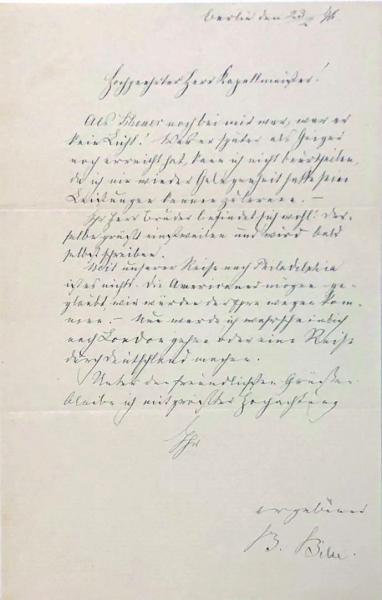 Berlin den 23/2 76.
Hochgeehrter Herr Kapellmeister!
Als noch bei mir war, war er
kein Licht! Was er später als Geiger
noch erreicht hat, kann ich nicht beurtheilen,
da ich nie wieder Gelegenheit hatte seine
Leistungen kennen zu lernen. —
Ihr Herr Bruder befindet sich wohl. Der-
selbe grüßt einstweilen und wird bald
selbst schreiben.
Mit unserer Reise nach Philadelphia
ist es nichts. Die Amerikaner mögen ge-
glaubt, wir würden der Ehre wegen kom-
men. — Nun werde ich wahrscheinlich
nach London gehen oder eine Reise
durch Deutschland machen.
Unter den freundlichsten Grüßen
bleibe ich mit größter Hochachtung
Ihr
ergebener
B. Bilse.